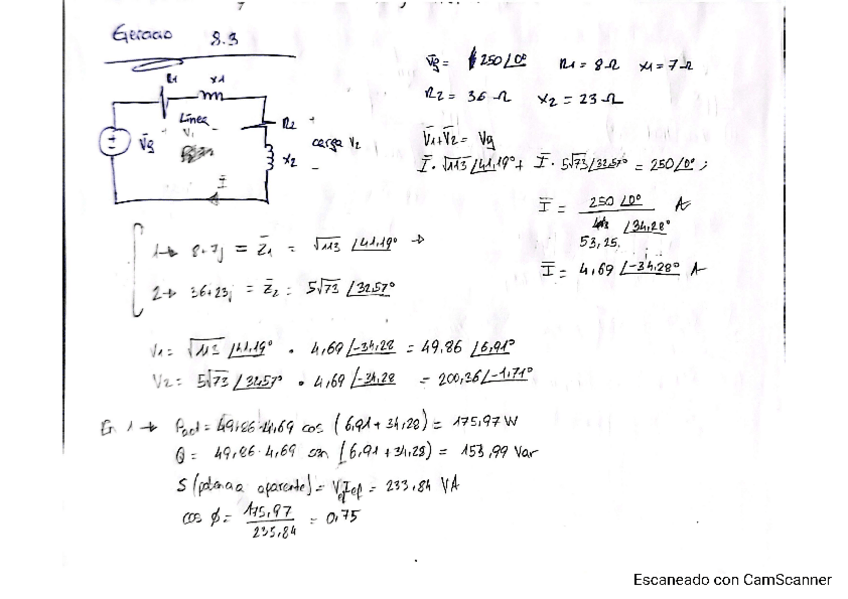 8.3
R1 X1
V̄g = 250∠0° R1 = 8 Ω X1 = 7 Ω
R2 = 36 Ω X2 = 23 Ω
Línea
V1
V̄g
R2
X2
+
carga V2
-
I
V̄1+V̄2 = Vg
Ī · √113 ∠41,19° + Ī · 5√73 ∠32,57° = 250∠0° ;
Ī = 250∠0° / 53,25 ∠34,28° A
Ī = 4,69 ∠-34,28° A
1→ 8+7j = Z̄1 = √113 ∠41,19° →
2→ 36+23j = Z̄2 = 5√73 ∠32,57°
V1 = √113 ∠41,19° · 4,69 ∠-34,28 = 49,86 ∠6,91°
V2 = 5√73 ∠32,57° · 4,69 ∠-34,28 = 200,36 ∠-1,71°
En 1 → Pact = 49,86·4,69 cos (6,91 + 34,28) = 175,97 W
Q = 49,86·4,69 sen (6,91 + 34,28) = 153,99 Var
S (potencia aparente) = Vef Ief = 233,84 VA
cos φ = 175,97 / 235,84 = 0,75
Escaneado con CamScanner